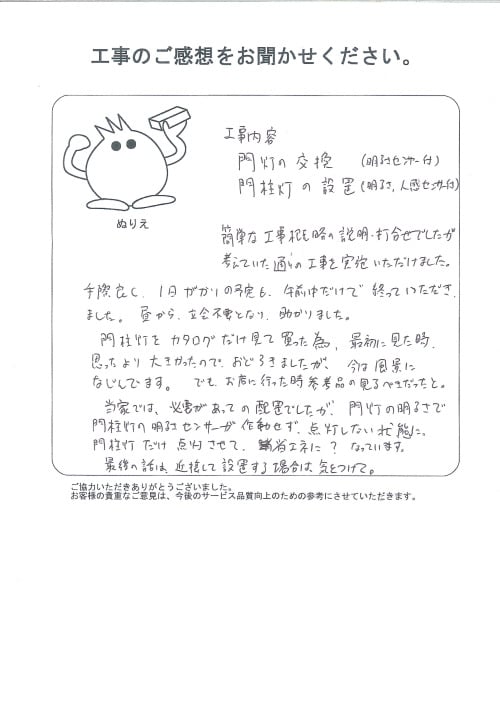 工事のご感想をお聞かせください。
ぬりえ
工事内容
門灯の交換 (明るセンサー付)
門柱灯の設置 (明るさ,人感センサー付)
簡単な工事概略の説明・打合せでしたが
考えていた通りの工事を実施いただけました。
手際良く、1日がかりの予定も、午前中だけで終っていただき、
ました。昼から、立会不要となり、助かりました。
門柱灯をカタログだけ見て買った為、最初に見た時、
思ったより大きかったので、おどろきましたが、今は風景に
なじんでます。でも、お店に行った時参考品の見るべきだったと。
当家では、必要があっての配置でしたが、門灯の明るさで
門柱灯の明るさセンサーが作動せず、点灯しない状態に、
門柱灯だけ点灯させて、省エネに？なっています。
最後の話は、近接して設置する場合は気をつけて。
ご協力いただきありがとうございました。
お客様の貴重なご意見は、今後のサービス品質向上のための参考にさせていただきます。